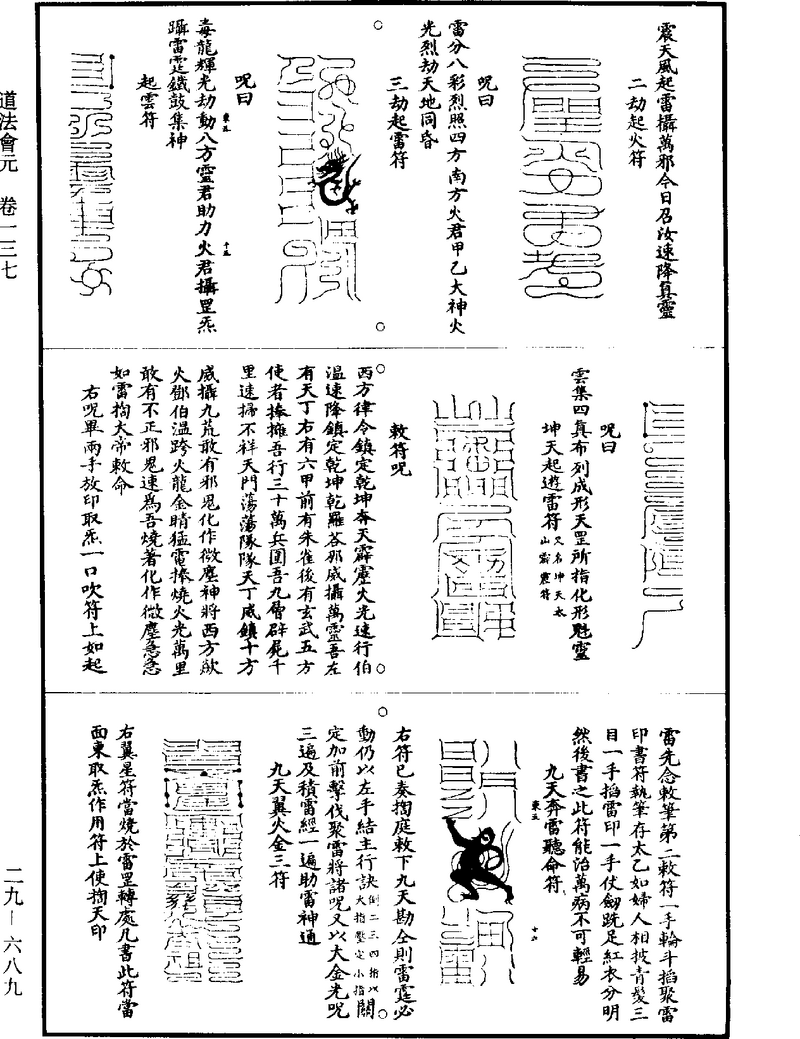 道法會元　卷一三七
二九—六八九
震天風起雷攝萬邪今日召汝速降真靈
二劫起火符
呪曰
雷分八彩烈照四方南方火君甲乙大神火
光烈劫天地同昏
三劫起雷符
呪曰
毒龍輝光劫動八方靈君助力火君攝罡炁
躡雷霆鐵鼓集神
起雲符
呪曰
雲集四真布列成形天罡所指化形魁靈
坤天起遊雷符又名坤天太
山霹靂符
敕符呪
西方律令鎮定乾坤奔天霹靂火光速行伯
溫速降鎮定乾坤乾羅荅那威攝萬靈吾左
有天丁右有六甲前有朱雀後有玄武五方
使者捧擁吾行三十萬兵圍吾九層辟屍千
里速掃不祥天門蕩蕩隊隊天丁威鎮十方
威攝九荒敢有邪鬼化作微塵神將西方歘
火鄧伯溫跨火龍金睛猛電捧燒火光萬里
敢有不正邪鬼速為吾燒著化作微塵急急
如雷掏大帝敕命
右呪畢兩手放印取炁一口吹符上如起
雷先念敕筆第二敕符一手輪斗搯聚雷
印書符執筆存太乙如婦人相披青髮三
目一手搯雷印一手仗劒跣足紅衣分明
然後書之此符能治萬病不可輕易
九天奔雷聽命符
右符已奏掏庭敕下九天勘仝則雷霆必
動仍以左手結主行訣倒二三四指以
大指壓定小指關
定加前擊伐聚雷將諸呪又以大金光呪
三遍及積雷經一遍助雷神通
九天翼火金三符
右翼星符當燒於雷罡轉處凡書此符當
面東取炁作用符上使掏天印